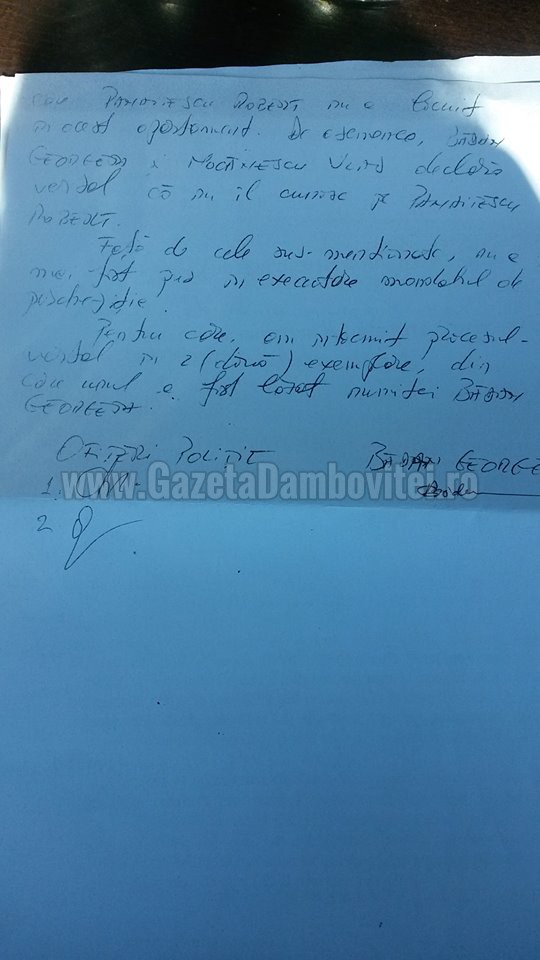 care PAMARIESCU ROBERT nu a locuit
in acest apartament. De asemenea, BĂDAN
GEORGETA și declară
verbal că nu îl cunosc pe PAMARIESCU
ROBERT.
Față de cele sus-mentionate, nu a
mai fost pus in executare mandatul de
perchezitie.
Pentru care am intocmit procesul-
verbal in 2 (două) exemplare, din
care unul a fost lăsat numitei BĂDAN
GEORGETA.
OFIȚERI POLIȚIE BĂDAN GEORGE
www.GazetaDambovitei.ro
1.
2